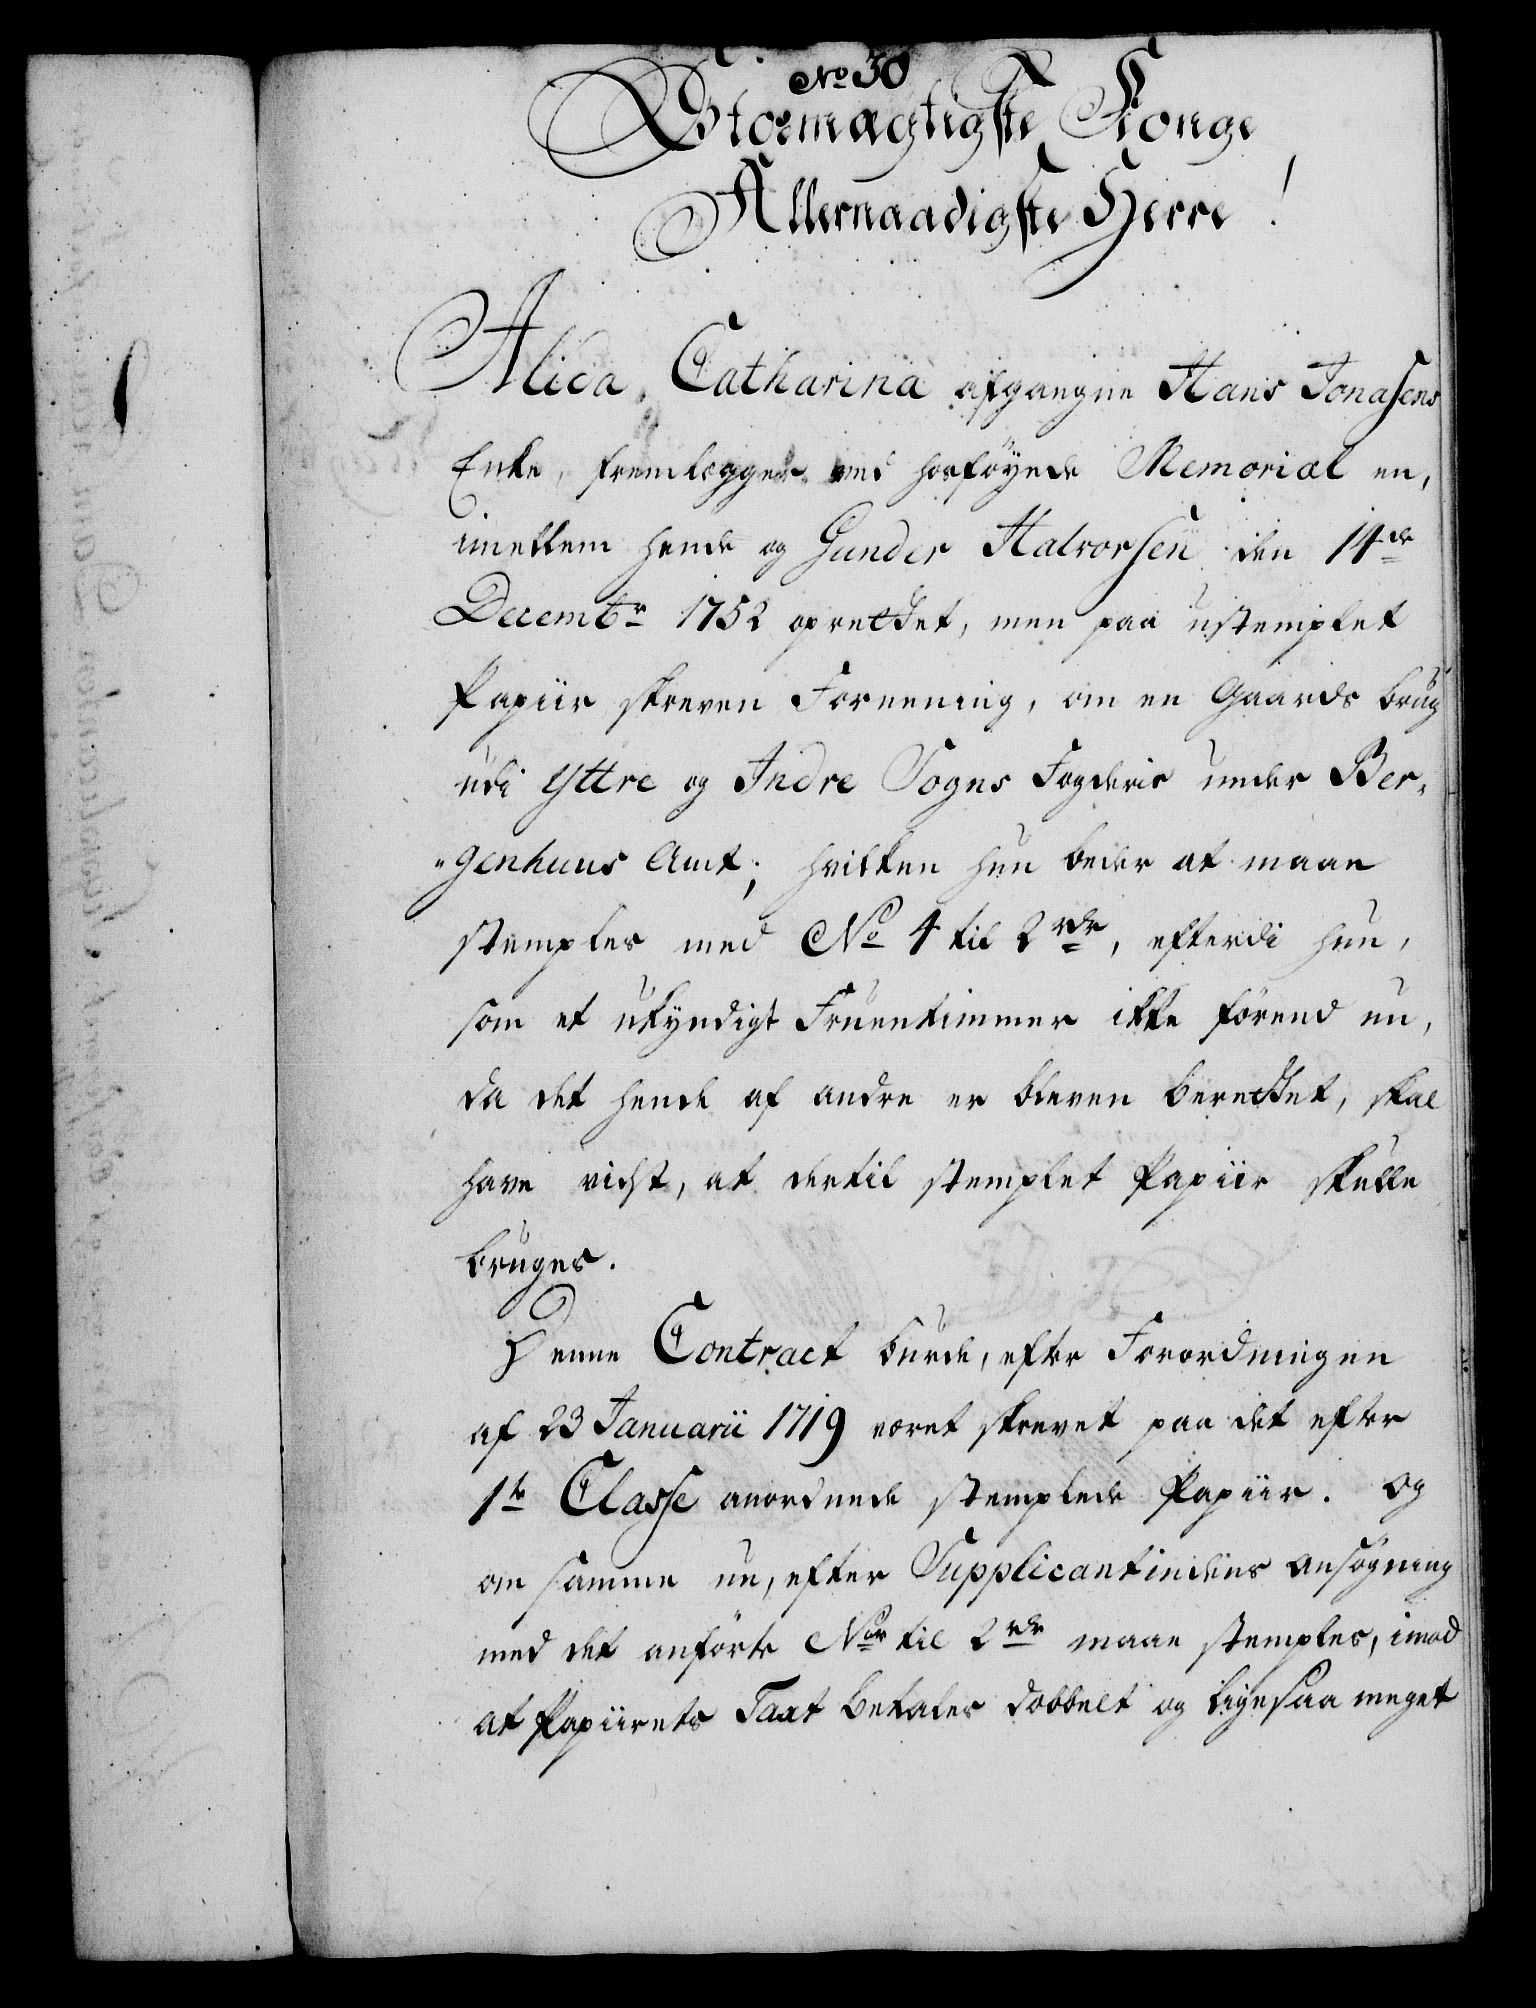 No 30
Stormægtigste Konge
Allernaadigste Herre!
Alida Catharina afgangne Hans Jonasens
Enke, fremlegger med hosföyede Memorial en,
imellem hende og Gunder Halvorsen den 14de
Decembr 1752 oprettet, men paa ustemplet
Papiir skreven Forening, om en Gaards brug
udi Yttre og Indre Sogns Fogderie under Ber-
-genhuus Amt; hvilken hun beder at maae
stemples med No 4 til 2 rdr, efterdi hun,
som et ukyndigt Fruentimmer ikke förend nu,
da det hende af andre er bleven berettet, skal
have vidst, at dertil stemplet Papiir skulle
bruges.
Denne Contract burde, efter Forordningen
af 23 Januarii 1719 været skrevet paa det efter
1te Classe anordnede stemplede Papiir. Og
om samme nu, efter Supplicantindens Ansögning
med det anförte Nor til 2 rdr maae stemples, imod
at Papiirets Taxt betales dobbelt og ligesaa meget